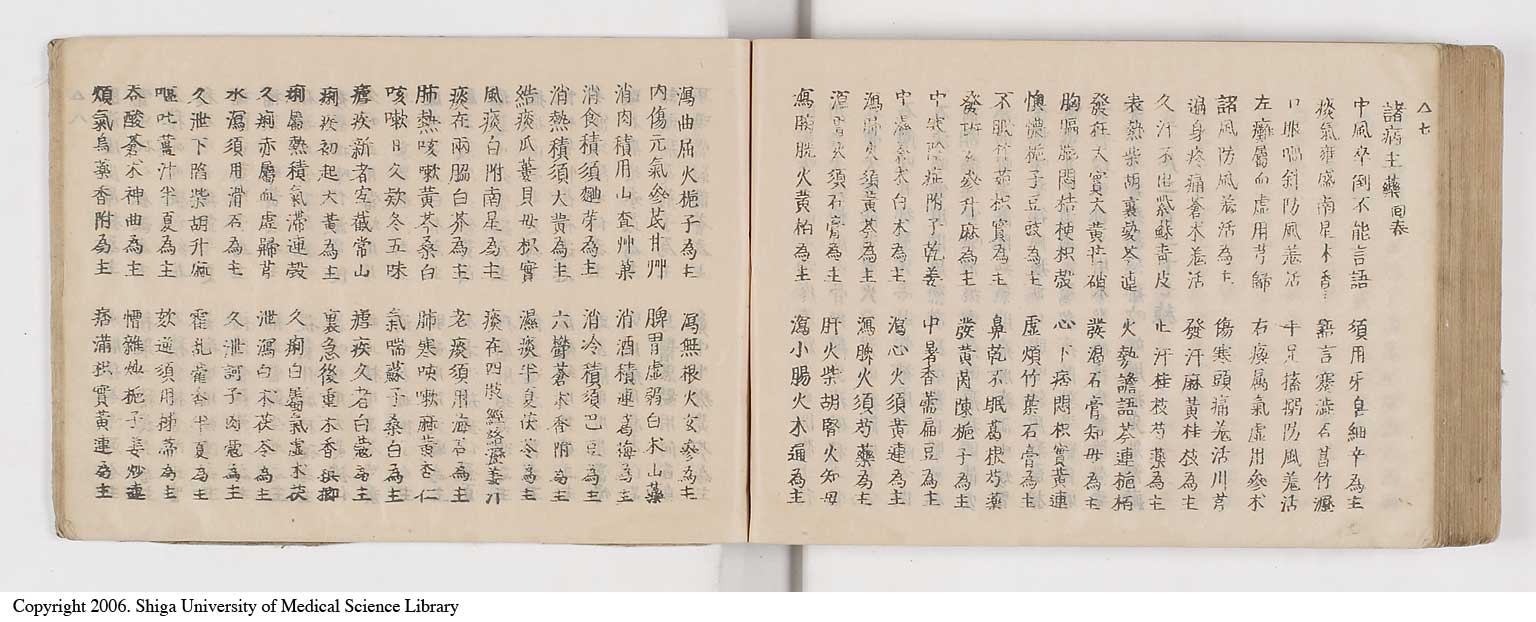 八七
諸病主藥 回春
中風卒倒不能言語 須用牙皂細辛為主
痰氣雍盛南星木香 語言蹇澁石菖竹瀝
口眼喎斜防風羗活 手足搐搦防風羗活
左癱屬血虚用芎歸 右瘓属氣虚用參术
諸風防風羗活為主 傷寒頭痛羗活川芎
遍身疼痛蒼术羗活 發汗麻黄桂枝為主
久汗不出紫蘇青皮 止汗桂枝芍藥為主
表熱柴胡裏芩連 火勢譫語芩連梔栢
發狂大實大黄芒硝 發渴石膏知母為主
胸膈膨悶桔梗枳殻 心下痞悶枳實黄連
懊憹梔子豆豉為主 虚煩竹葉石膏為主
不眠竹茹枳實為主 鼻乾不眠葛根芍藥
發斑玄參升麻為主 發黄茵陳梔子為主
中寒陰症附子乾姜 中暑香薷扁豆為主
中濕蒼术白术為主 瀉心火須黄連為主
瀉肺火須黄芩為主 瀉脾火須芍藥為主
瀉胃火須石膏為主 肝火柴胡腎火知母
瀉膀胱火黄栢為主 瀉小腸火木通為主
瀉曲屈火梔子為主 瀉無根火玄參為主
内傷元氣參芪甘艸 脾胃虚弱白术山藥
消肉積用山査艸菓 消酒積連葛梅為主
消食積須麯芽為主 消冷積須巴豆為主
消熱積須大黄為主 六鬱蒼术香附為主
結痰瓜蔞貝母枳實 濕痰半夏茯苓為主
風痰白附南星為主 痰在四肢經絡瀝姜汁
痰在兩脇白芥為主 老痰須用海石為主
肺熱咳嗽黄芩桑白 肺寒咳嗽麻黄杏仁
咳嗽日久欵冬五味 氣喘蘇子桑白為主
瘧疾新者宜截常山 瘧疾久者白蔻為主
痢疾初起大黄為主 裏急後重木香梹榔
痢屬熱積氣滞連殻 久痢白屬氣虚术茯
久痢赤屬血虚歸芎 泄瀉白术茯苓為主
水瀉須用滑石為主 久泄訶子肉蔻為主
久泄下陷柴胡升麻 霍乱藿香半夏為主
嘔吐薑汁半夏為主 欬逆須用柿蒂為主
呑酸蒼术神曲為主 嘈雜梔子姜炒連
煩氣烏藥香附為主 痞滿枳實黄連為主
Copyright 2006. Shiga University of Medical Science Library